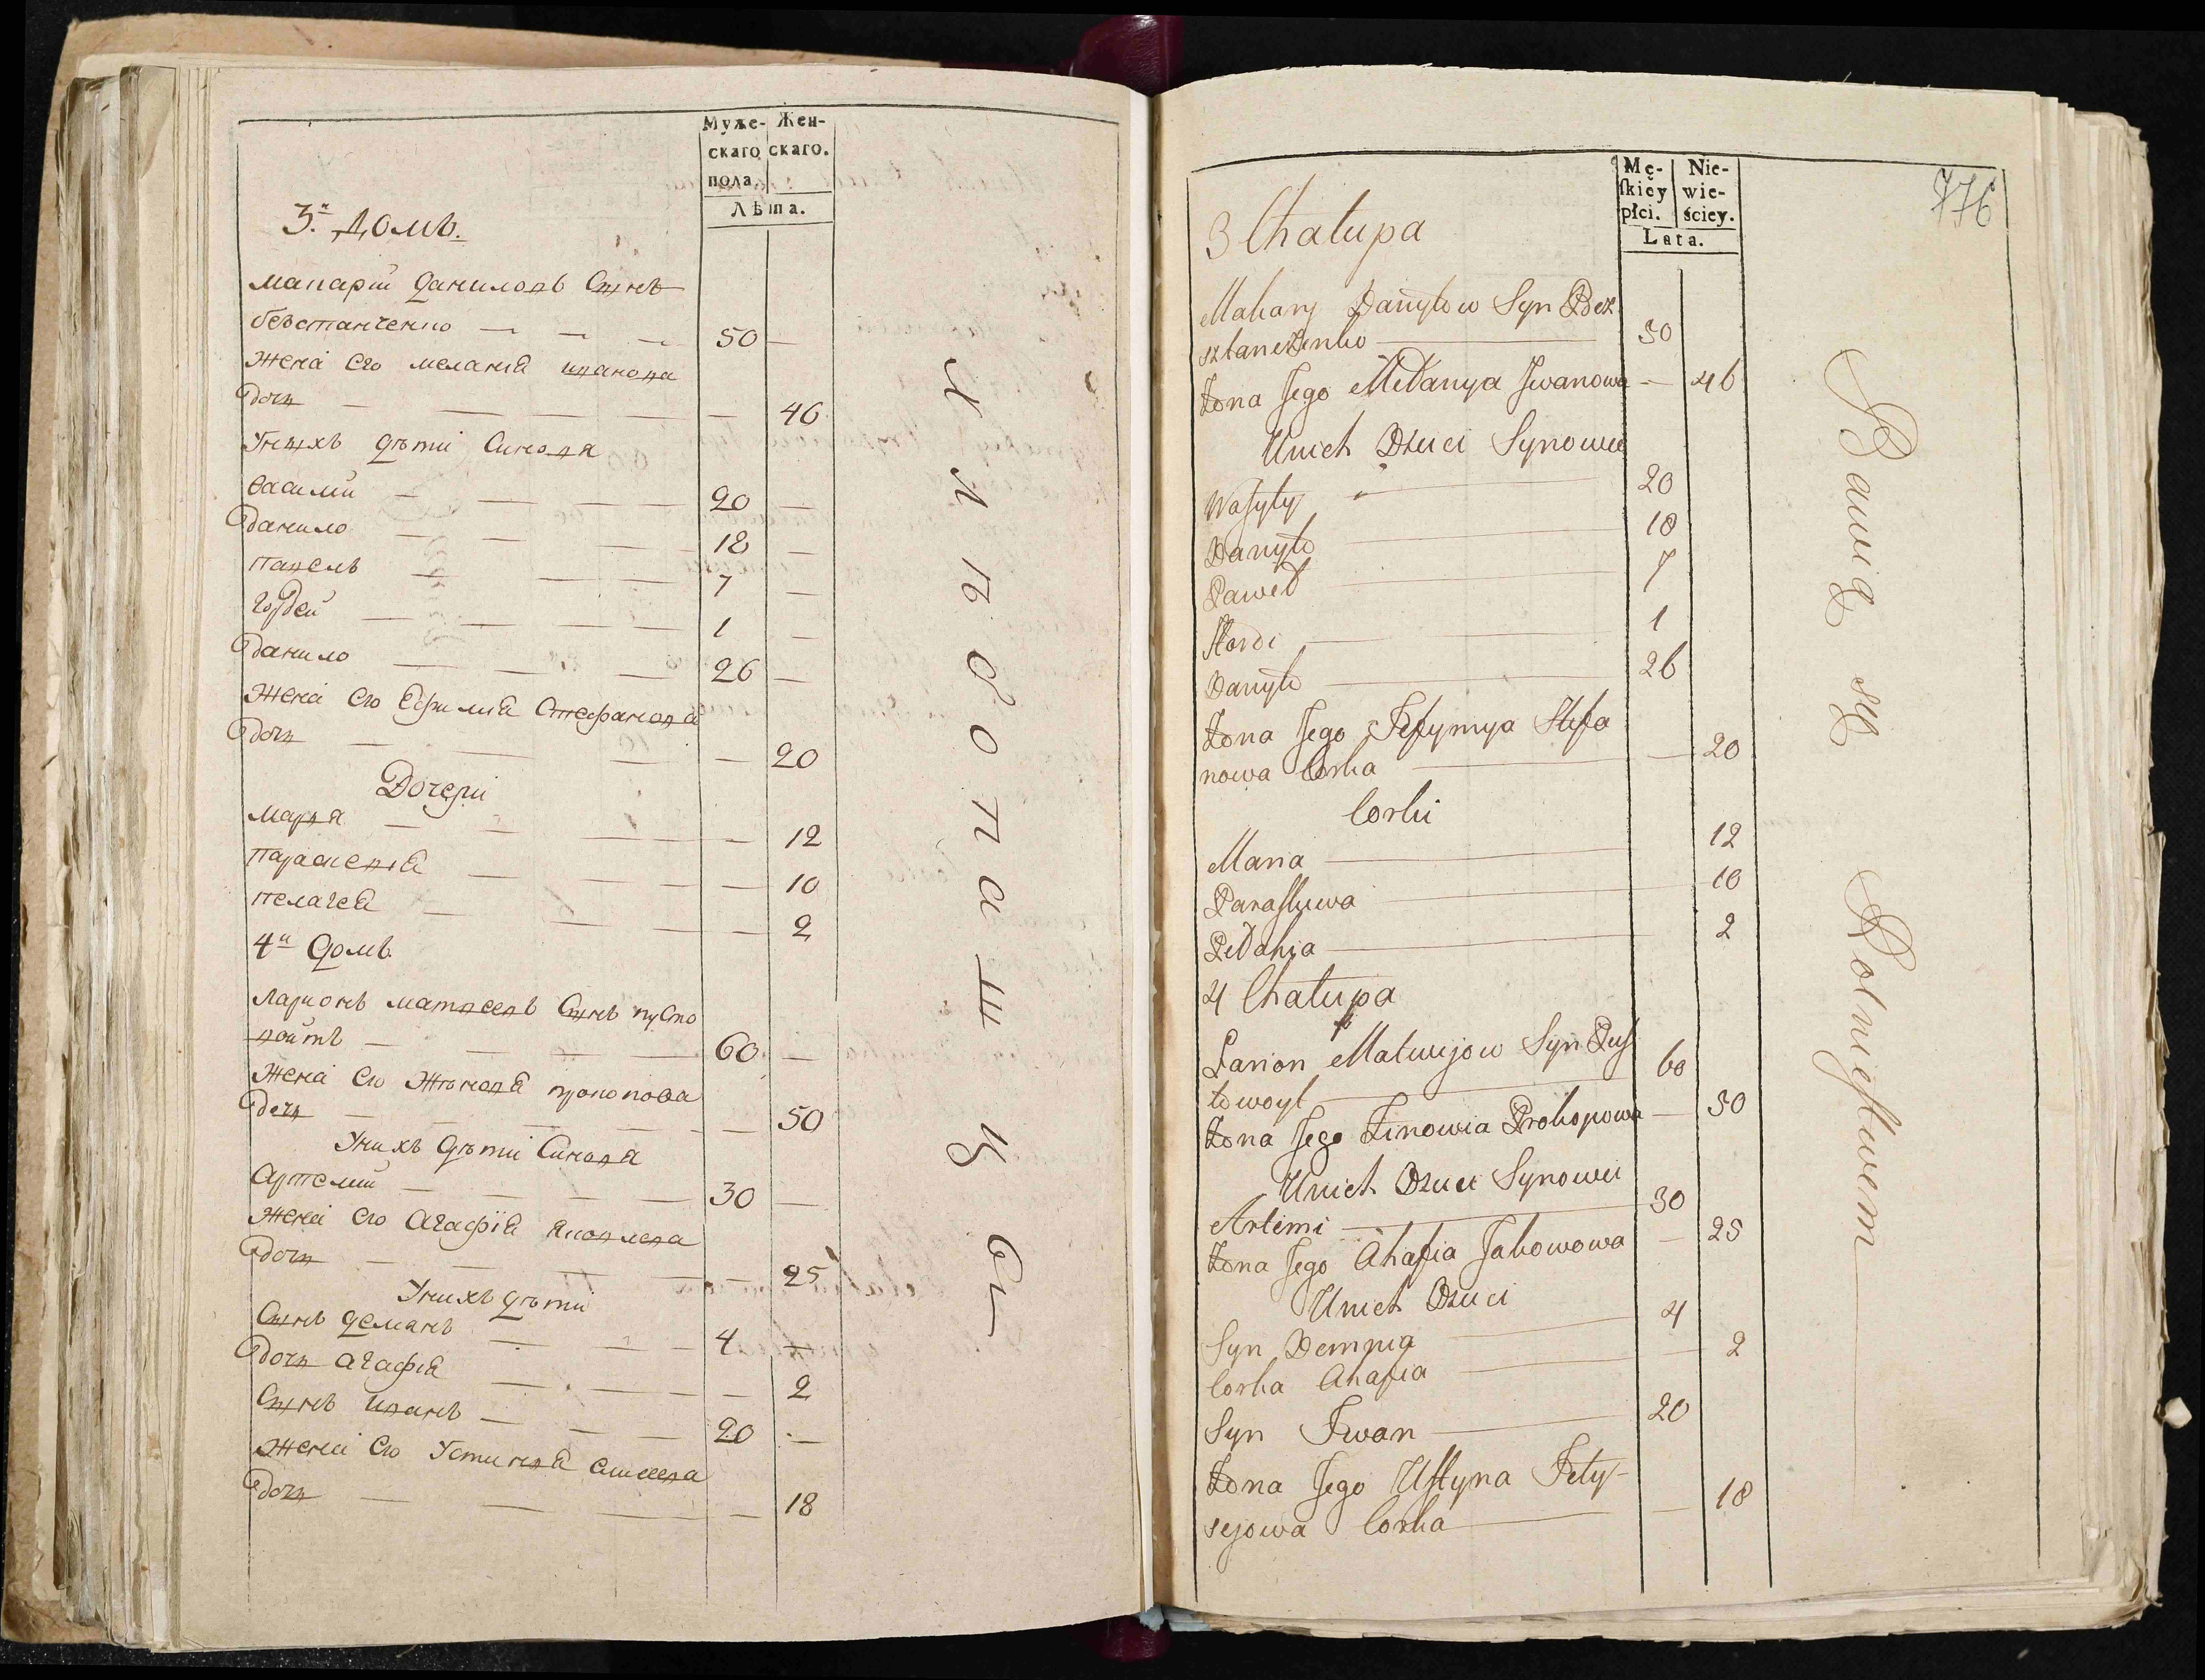 Муже- Жен-
скаго скаго.
пола.
Лѣта.
3.й домъ.
макарій даниловъ Сынъ
безстанченко — — — 50 —
Жена его меланія иванова
дочь — — — — — 46
Унихъ дѣти Синовя
василий — — — 20 —
данило — — — 18 —
павелъ — — — 7 —
гордей — — — — 1 —
данило — — — 26 —
Жена его Ефимія Стефанова
дочь — — — — 20
Дочери
маря — — — — 12
параскевія — — — — 10
пелагея — — — 2
4й домъ.
ларионъ матвеевъ Сынъ пусто
войтъ — — — — 60 —
Жена его Жѣновія прокопова
дочь — — — — 50
Унихъ дѣти Синовя
Артемий — — — — 30 —
Жена его Агафія яковлева
дочь — — — — — 25
Унихъ дѣти
Сынъ демянъ — — — 4 —
дочь агафія — — — — — 2
Сынъ иванъ — — — 20 —
Жена его Устинія
дочь — — — — 18
хлѣбопашцы
776
Mę- Nie-
skiey wie-
płci. ściey.
Lata.
3 Chałupa
Makary Danyłow Syn Bez
sztanczenko — 50
Żona Jego Mełanya Jwanowa — 46
Unich Dzieci Synowie
Wasyly — 20
Danyło — 18
Paweł — 7
Hordi — 1
Danyło — 26
Żona Jego Jefymya Stefa
nowa Corka — — 20
Corki
Maria — 12
Paraskiewa — 10
Pełahia — 2
4 Chałupa
Larion Matwijow Syn Pus
towoyt — 60
Żona Jego Zinowia Prokopowa — 50
Unich Dzieci Synowie
Artemi — 30
Żona Jego Ahafia Jakowowa — 25
Unich Dzieci
Syn Demian — 4
Corka Ahafia — — 2
Syn Jwan — 20
Żona Jego Ustyna
sejowa Corka — — 18
Bawią się Rolnictwem